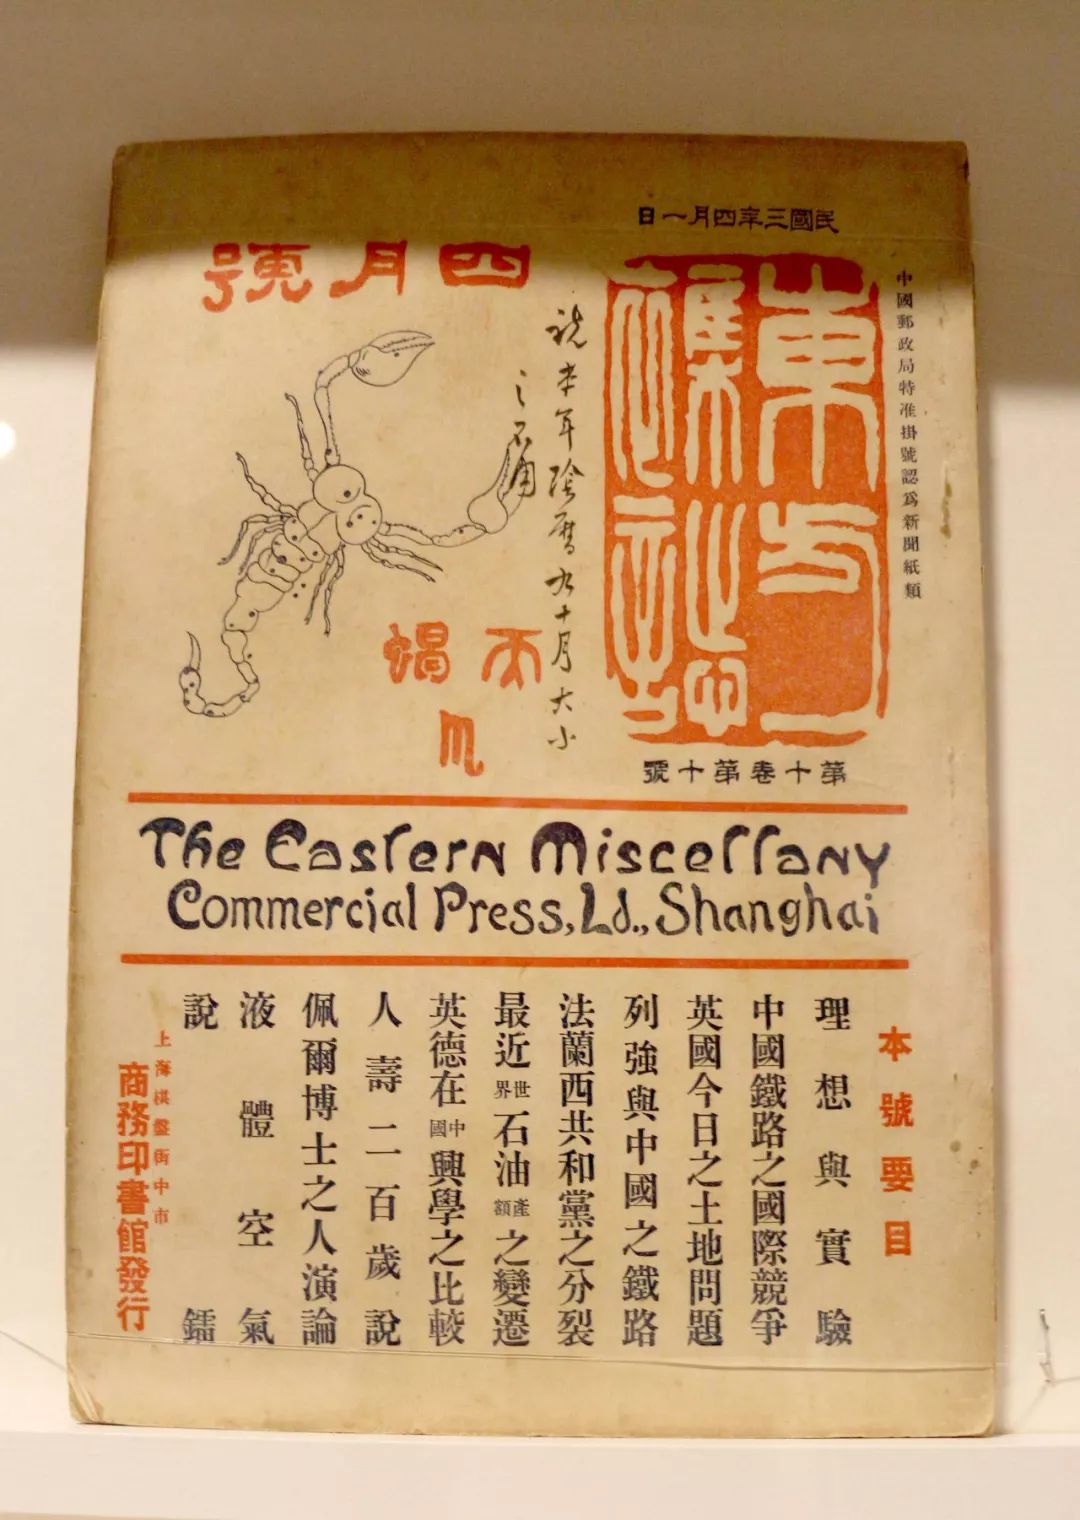 民國三年四月一日
中國郵政局特准掛號認爲新聞紙類
東方
雜誌
第十卷第十號
四月號
本年陰曆九十月大小
之不
天蝎
♏
The Eastern Miscellany
Commercial Press, Ld., Shanghai
本號要目
理想與實驗
中國鐵路之國際競爭
英國今日之土地問題
列強與中國之鐵路
法蘭西共和黨之分裂
最近世界石油產額之變遷
英德在中國興學之比較
人壽二百歲說
佩爾博士之人演論
液體空氣
說鐳
上海棋盤街中市
商務印書館發行